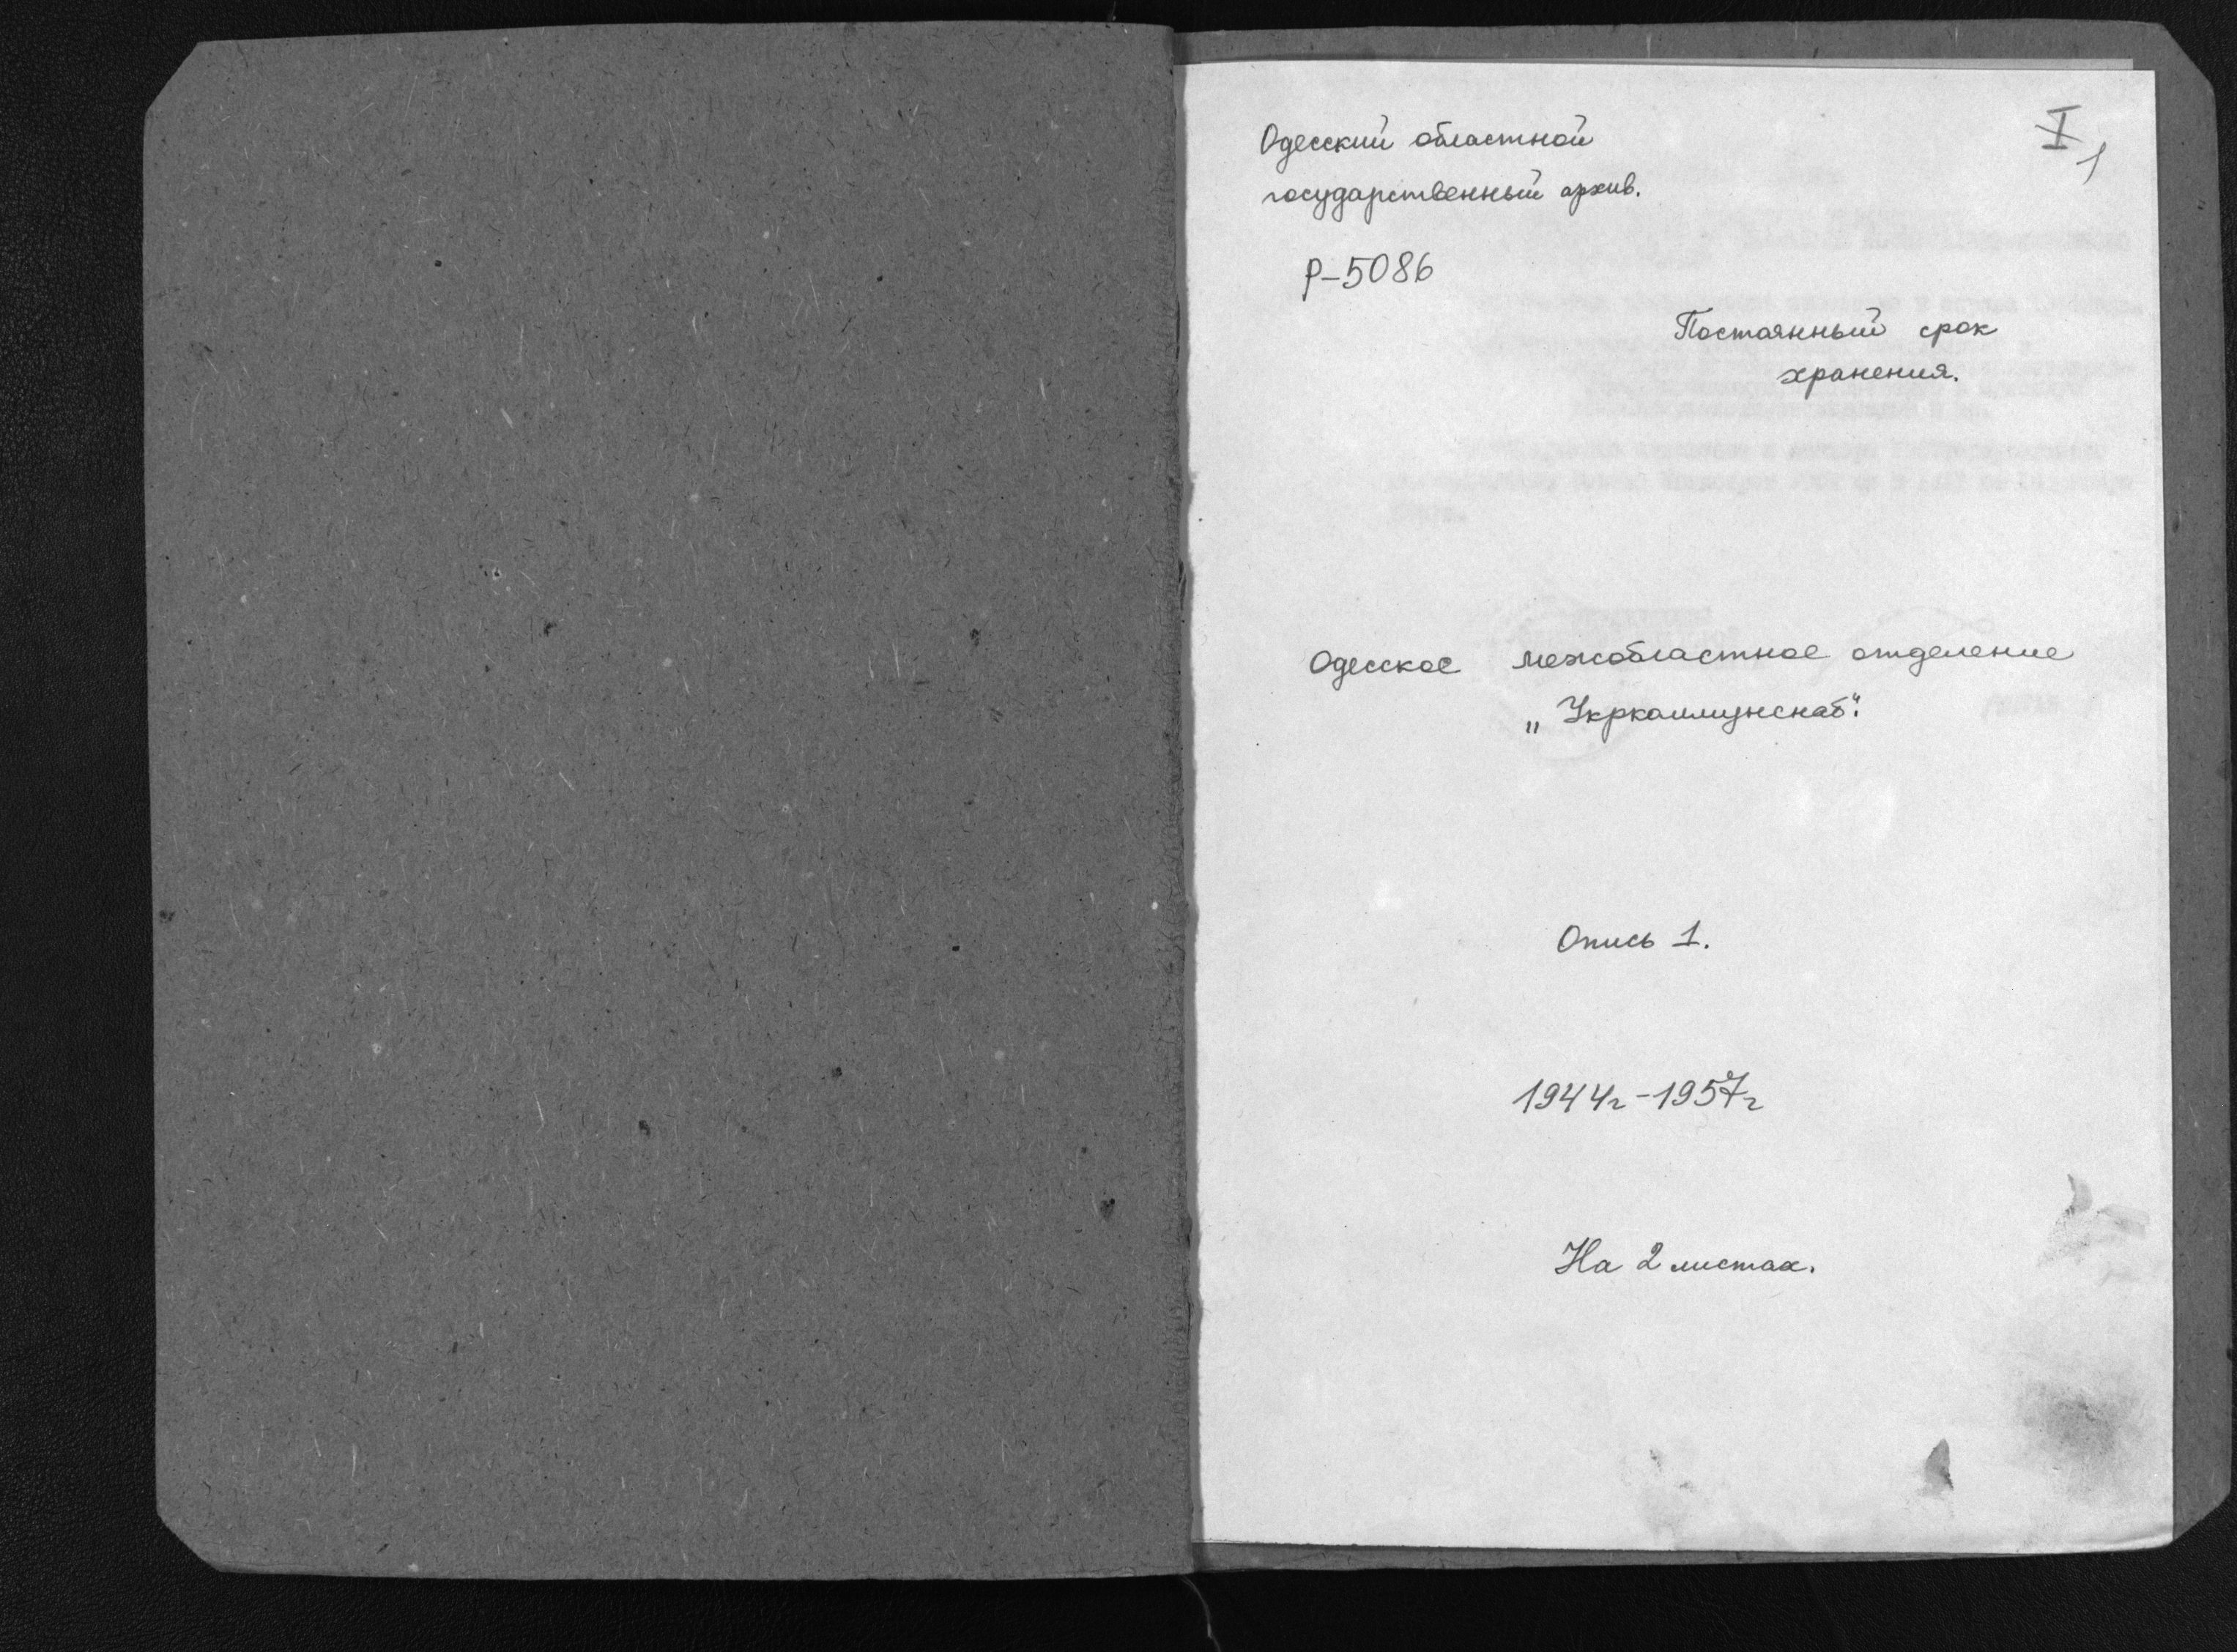 I 1
Одесский областной
государственный архив.
Р-5086
Постоянный срок
хранения.
Одесское межобластное отделение
„Укркоммунснаб".
Опись 1.
1944г-1957г
На 2 листах.